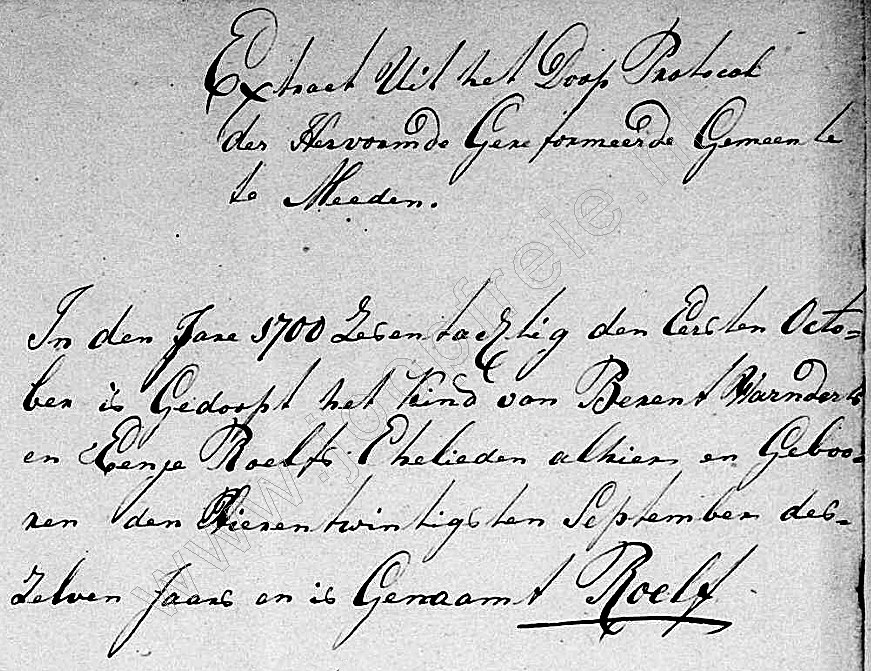 Extract Uit het Doop Protocol
der Hervormde Gereformeerde Gemeente
te Meeden.
In den Jare 1700 Zesentachtig den Eersten Octo=
ber is Gedoopt het Kind van Berent Warnders
en Eenje Roelfs Ehelieden alhier en Geboo=
ren den Vierentwintigsten September des=
zelven Jaars en is Genaamt Roelf